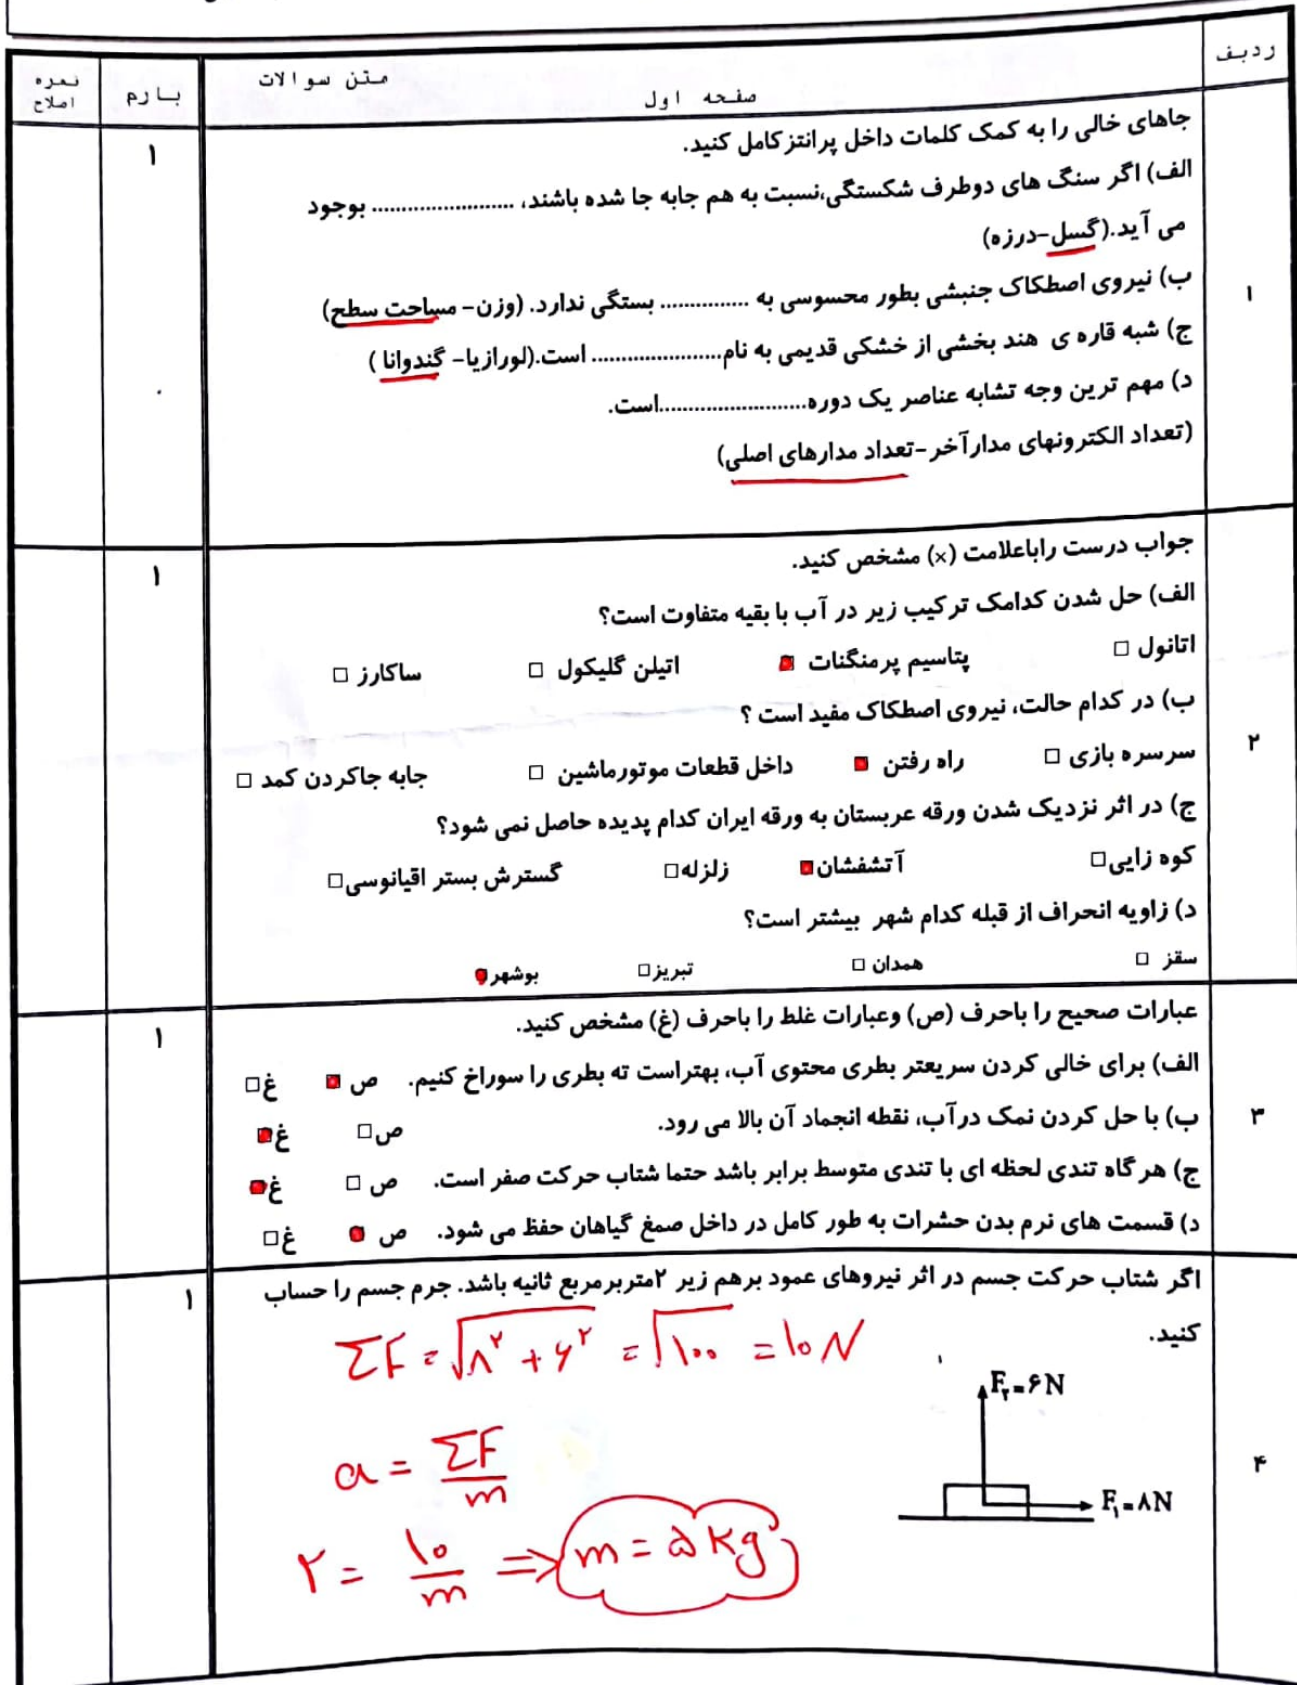 ردیف
متن سوالات
صفحه اول
بارم
نمره
اصلاح
۱
جاهای خالی را به کمک کلمات داخل پرانتزکامل کنید.
۱
الف) اگر سنگ های دوطرف شکستگی،نسبت به هم جابه جا شده باشند، ........................ بوجود
می آید.(گسل-درزه)
ب) نیروی اصطکاک جنبشی بطور محسوسی به ............... بستگی ندارد. (وزن- مساحت سطح)
ج) شبه قاره ی هند بخشی از خشکی قدیمی به نام...................... است.(لورازیا- گندوانا )
د) مهم ترین وجه تشابه عناصر یک دوره.........................است.
(تعداد الکترونهای مدارآخر-تعداد مدارهای اصلی)
۲
جواب درست راباعلامت (×) مشخص کنید.
۱
الف) حل شدن کدامک ترکیب زیر در آب با بقیه متفاوت است؟
اتانول □ پتاسیم پرمنگنات ■ اتیلن گلیکول □ ساکارز □
ب) در کدام حالت، نیروی اصطکاک مفید است ؟
سرسره بازی □ راه رفتن ■ داخل قطعات موتورماشین □ جابه جاکردن کمد □
ج) در اثر نزدیک شدن ورقه عربستان به ورقه ایران کدام پدیده حاصل نمی شود؟
کوه زایی□ آتشفشان■ زلزله□ گسترش بستر اقیانوسی□
د) زاویه انحراف از قبله کدام شهر بیشتر است؟
سقز □ همدان □ تبریز□ بوشهر■
۳
عبارات صحیح را باحرف (ص) وعبارات غلط را باحرف (غ) مشخص کنید.
۱
الف) برای خالی کردن سریعتر بطری محتوی آب، بهتراست ته بطری را سوراخ کنیم. ص ■ غ□
ب) با حل کردن نمک درآب، نقطه انجماد آن بالا می رود. ص□ غ■
ج) هرگاه تندی لحظه ای با تندی متوسط برابر باشد حتما شتاب حرکت صفر است. ص □ غ■
د) قسمت های نرم بدن حشرات به طور کامل در داخل صمغ گیاهان حفظ می شود. ص ■ غ□
۴
اگر شتاب حرکت جسم در اثر نیروهای عمود برهم زیر ۲متربرمربع ثانیه باشد. جرم جسم را حساب
۱
کنید.
ΣF = √۸² + ۶² = √۱۰۰ = ۱۰ N
F₂=۶N
F₁=۸N
a = ΣF/m
۲ = ۱۰/m ⇒ m = ۵ kg